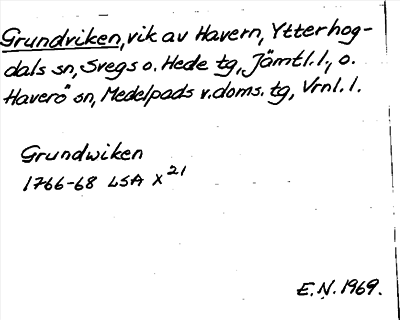 Grundviken, vik av Havern, Ytterhog-
dals sn, Svegs o. Hede tg, Jämtl. l., o.
Haverö sn, Medelpads v. doms. tg, Vrnl. l.
Grundwiken
1766-68 LSA X²¹
E. N. 1969.